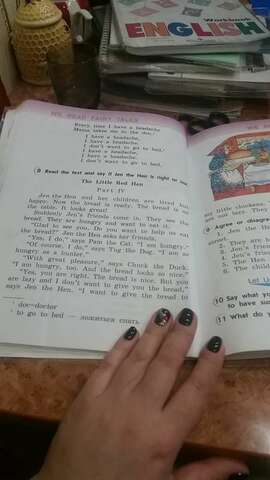 Workbook
ENGLISH
WE READ FAIRY TALES
Every time I have a headache,
Mama takes me to the doc.¹
I have a headache,
I have a headache,
I don't want to go to bed.
I have a headache,
I have a headache,
I don't want to go to bed.
Read the text and say if Jen the Hen is right or
The Little Red Hen
Part IV
Jen the Hen and her children are tired but
happy. Now the bread is ready. The bread is on
the table. It is great!
Suddenly Jen's friends come in. They see the
bread. They are hungry and want to eat it.
"Glad to see you. Do you want to help us eat
the bread?" Jen the Hen asks her friends.
"Yes, I do," says Pam the Cat. "I am hungry."
"Of course, I do," says Tog the Dog. "I am as
hungry as a hunter."
"With great pleasure," says Chuck the Duck.
"I am hungry, too. And the bread looks so nice."
"Yes, you are right. The bread is nice. But you
are lazy and I don't want to give you the bread,"
says Jen the Hen. "I want to give the bread to
¹ doc=doctor
² to go to bed — ложиться спать
my little chickens.
and
Agree or disagree
1. Jen the Hen
2. They are
3. Jen's
4. Jen's friends
5. The
6. The child
Let Us
10 Say what you
to have
11 What do y